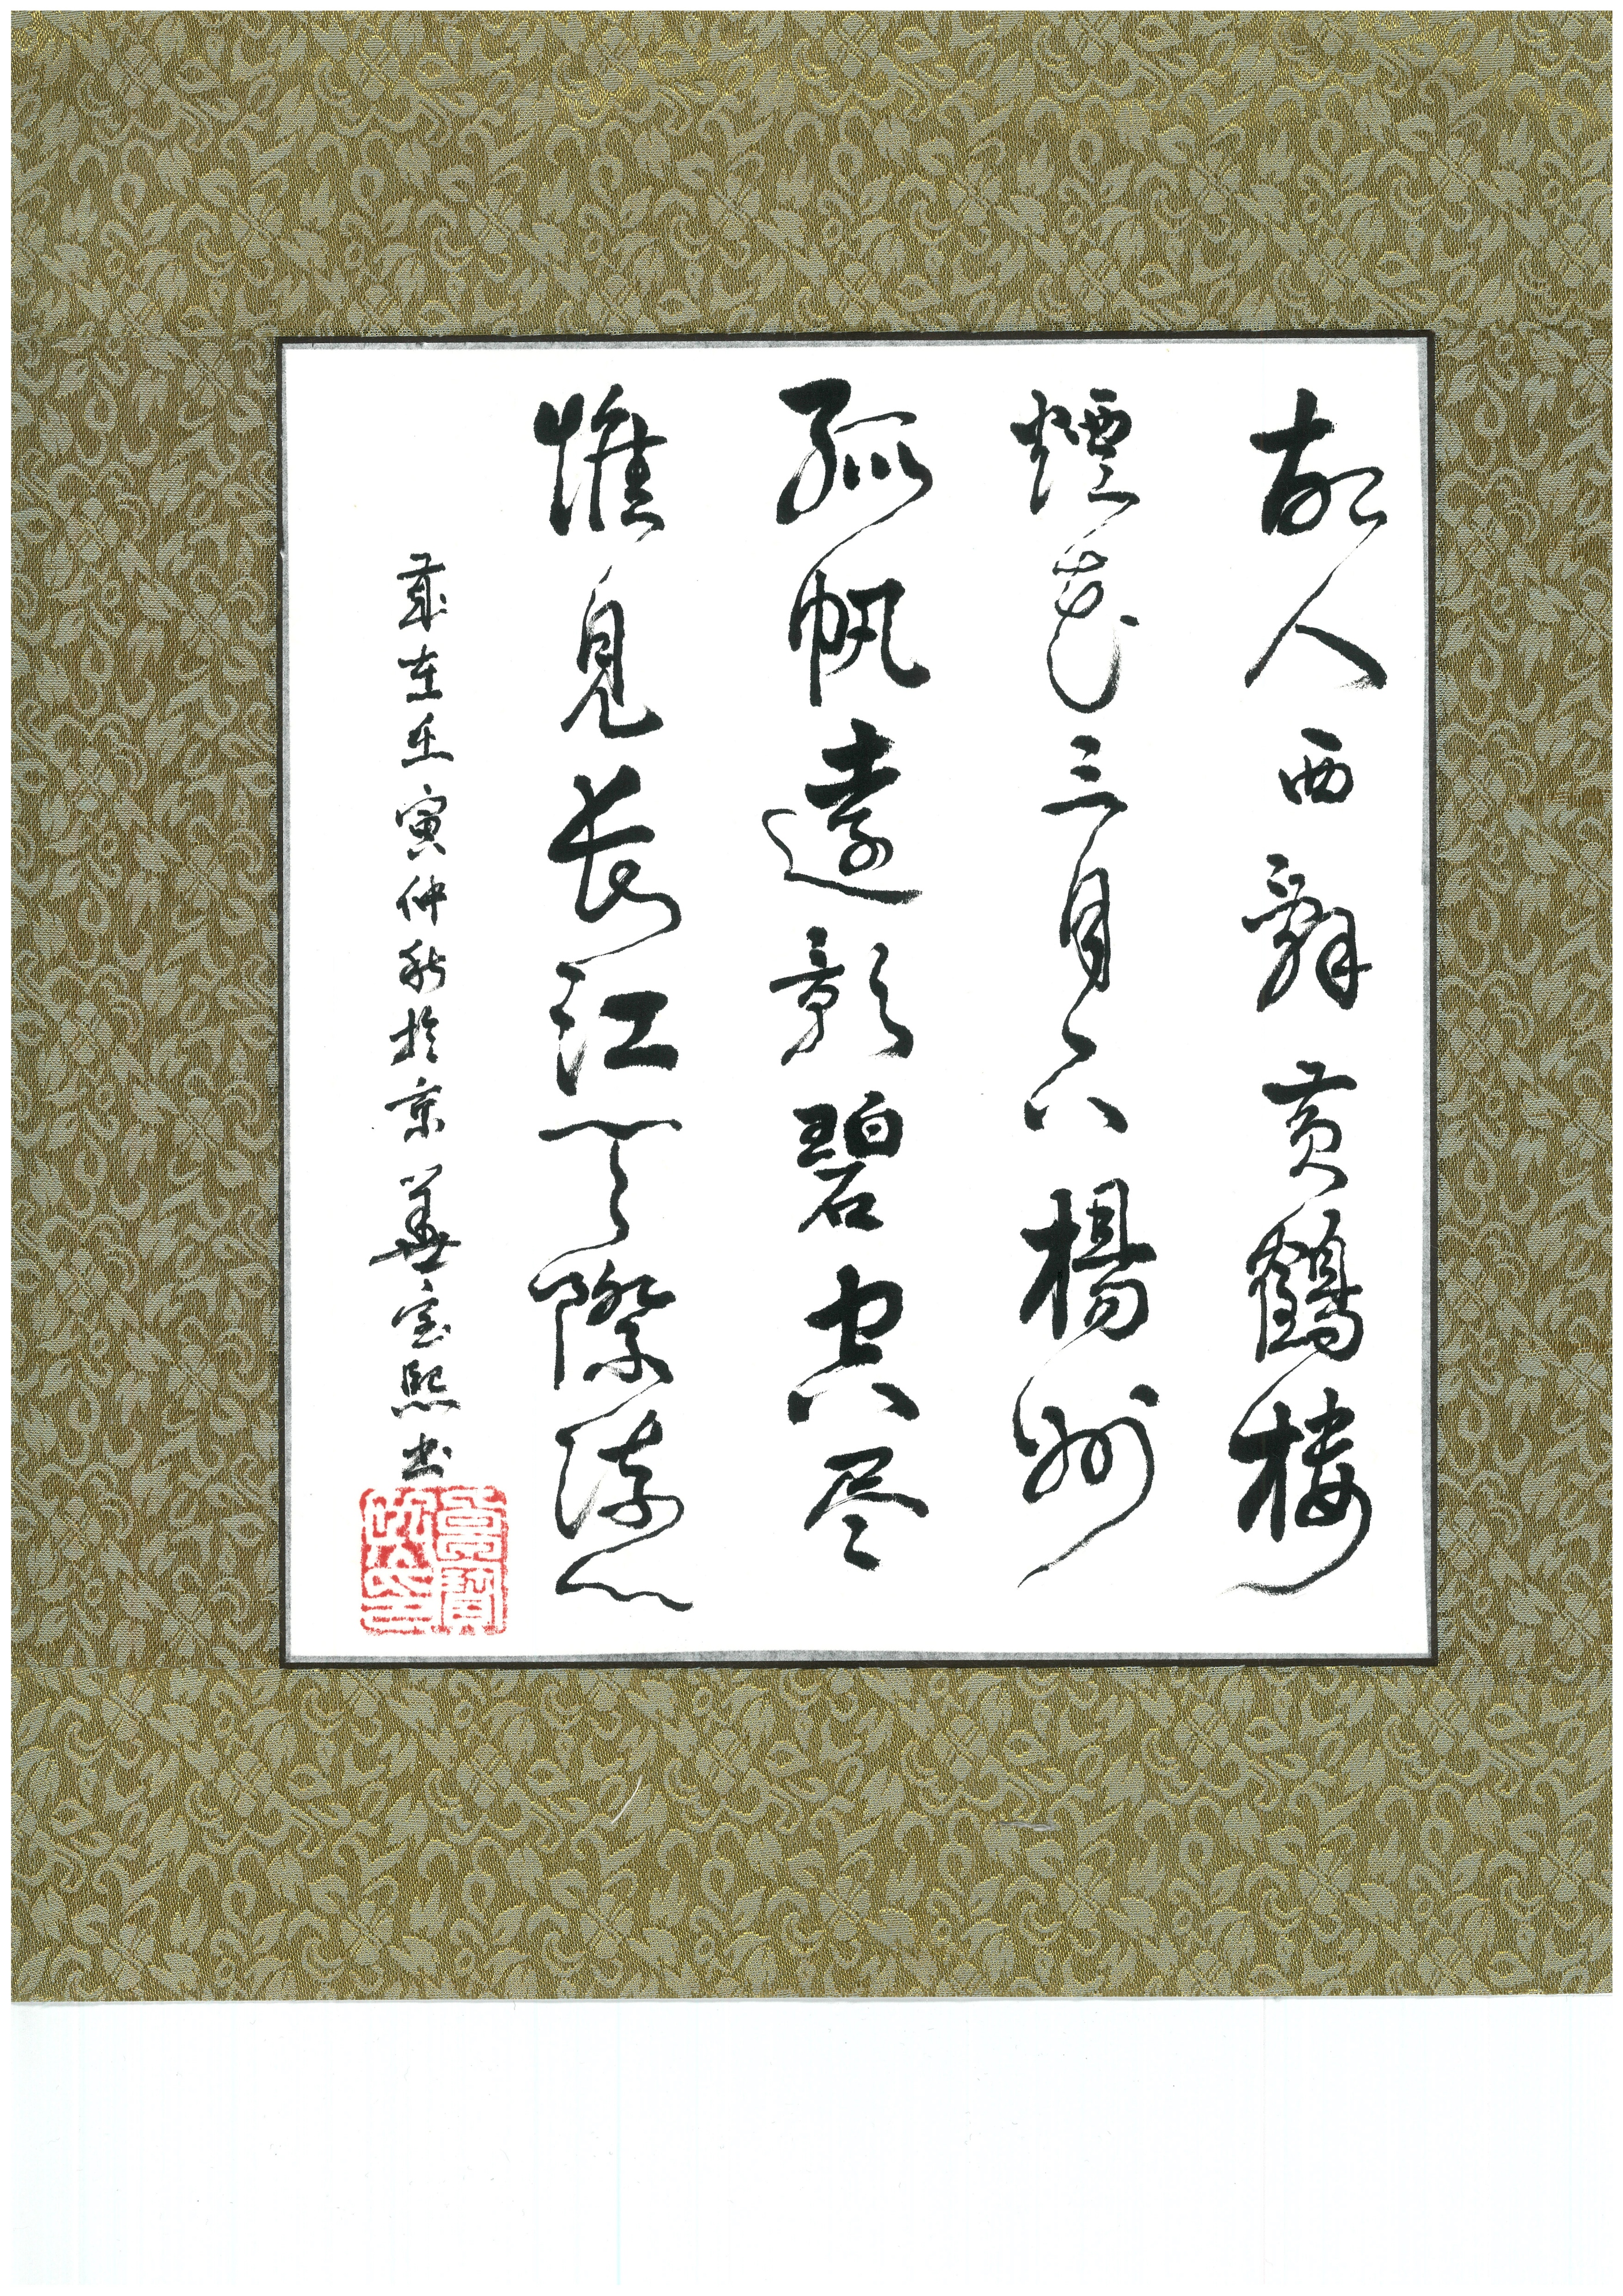 故人西辞黄鶴楼
煙花三月下揚州
孤帆遠影碧空尽
惟見長江天際流
歲在壬寅仲秋於京華宝熙书